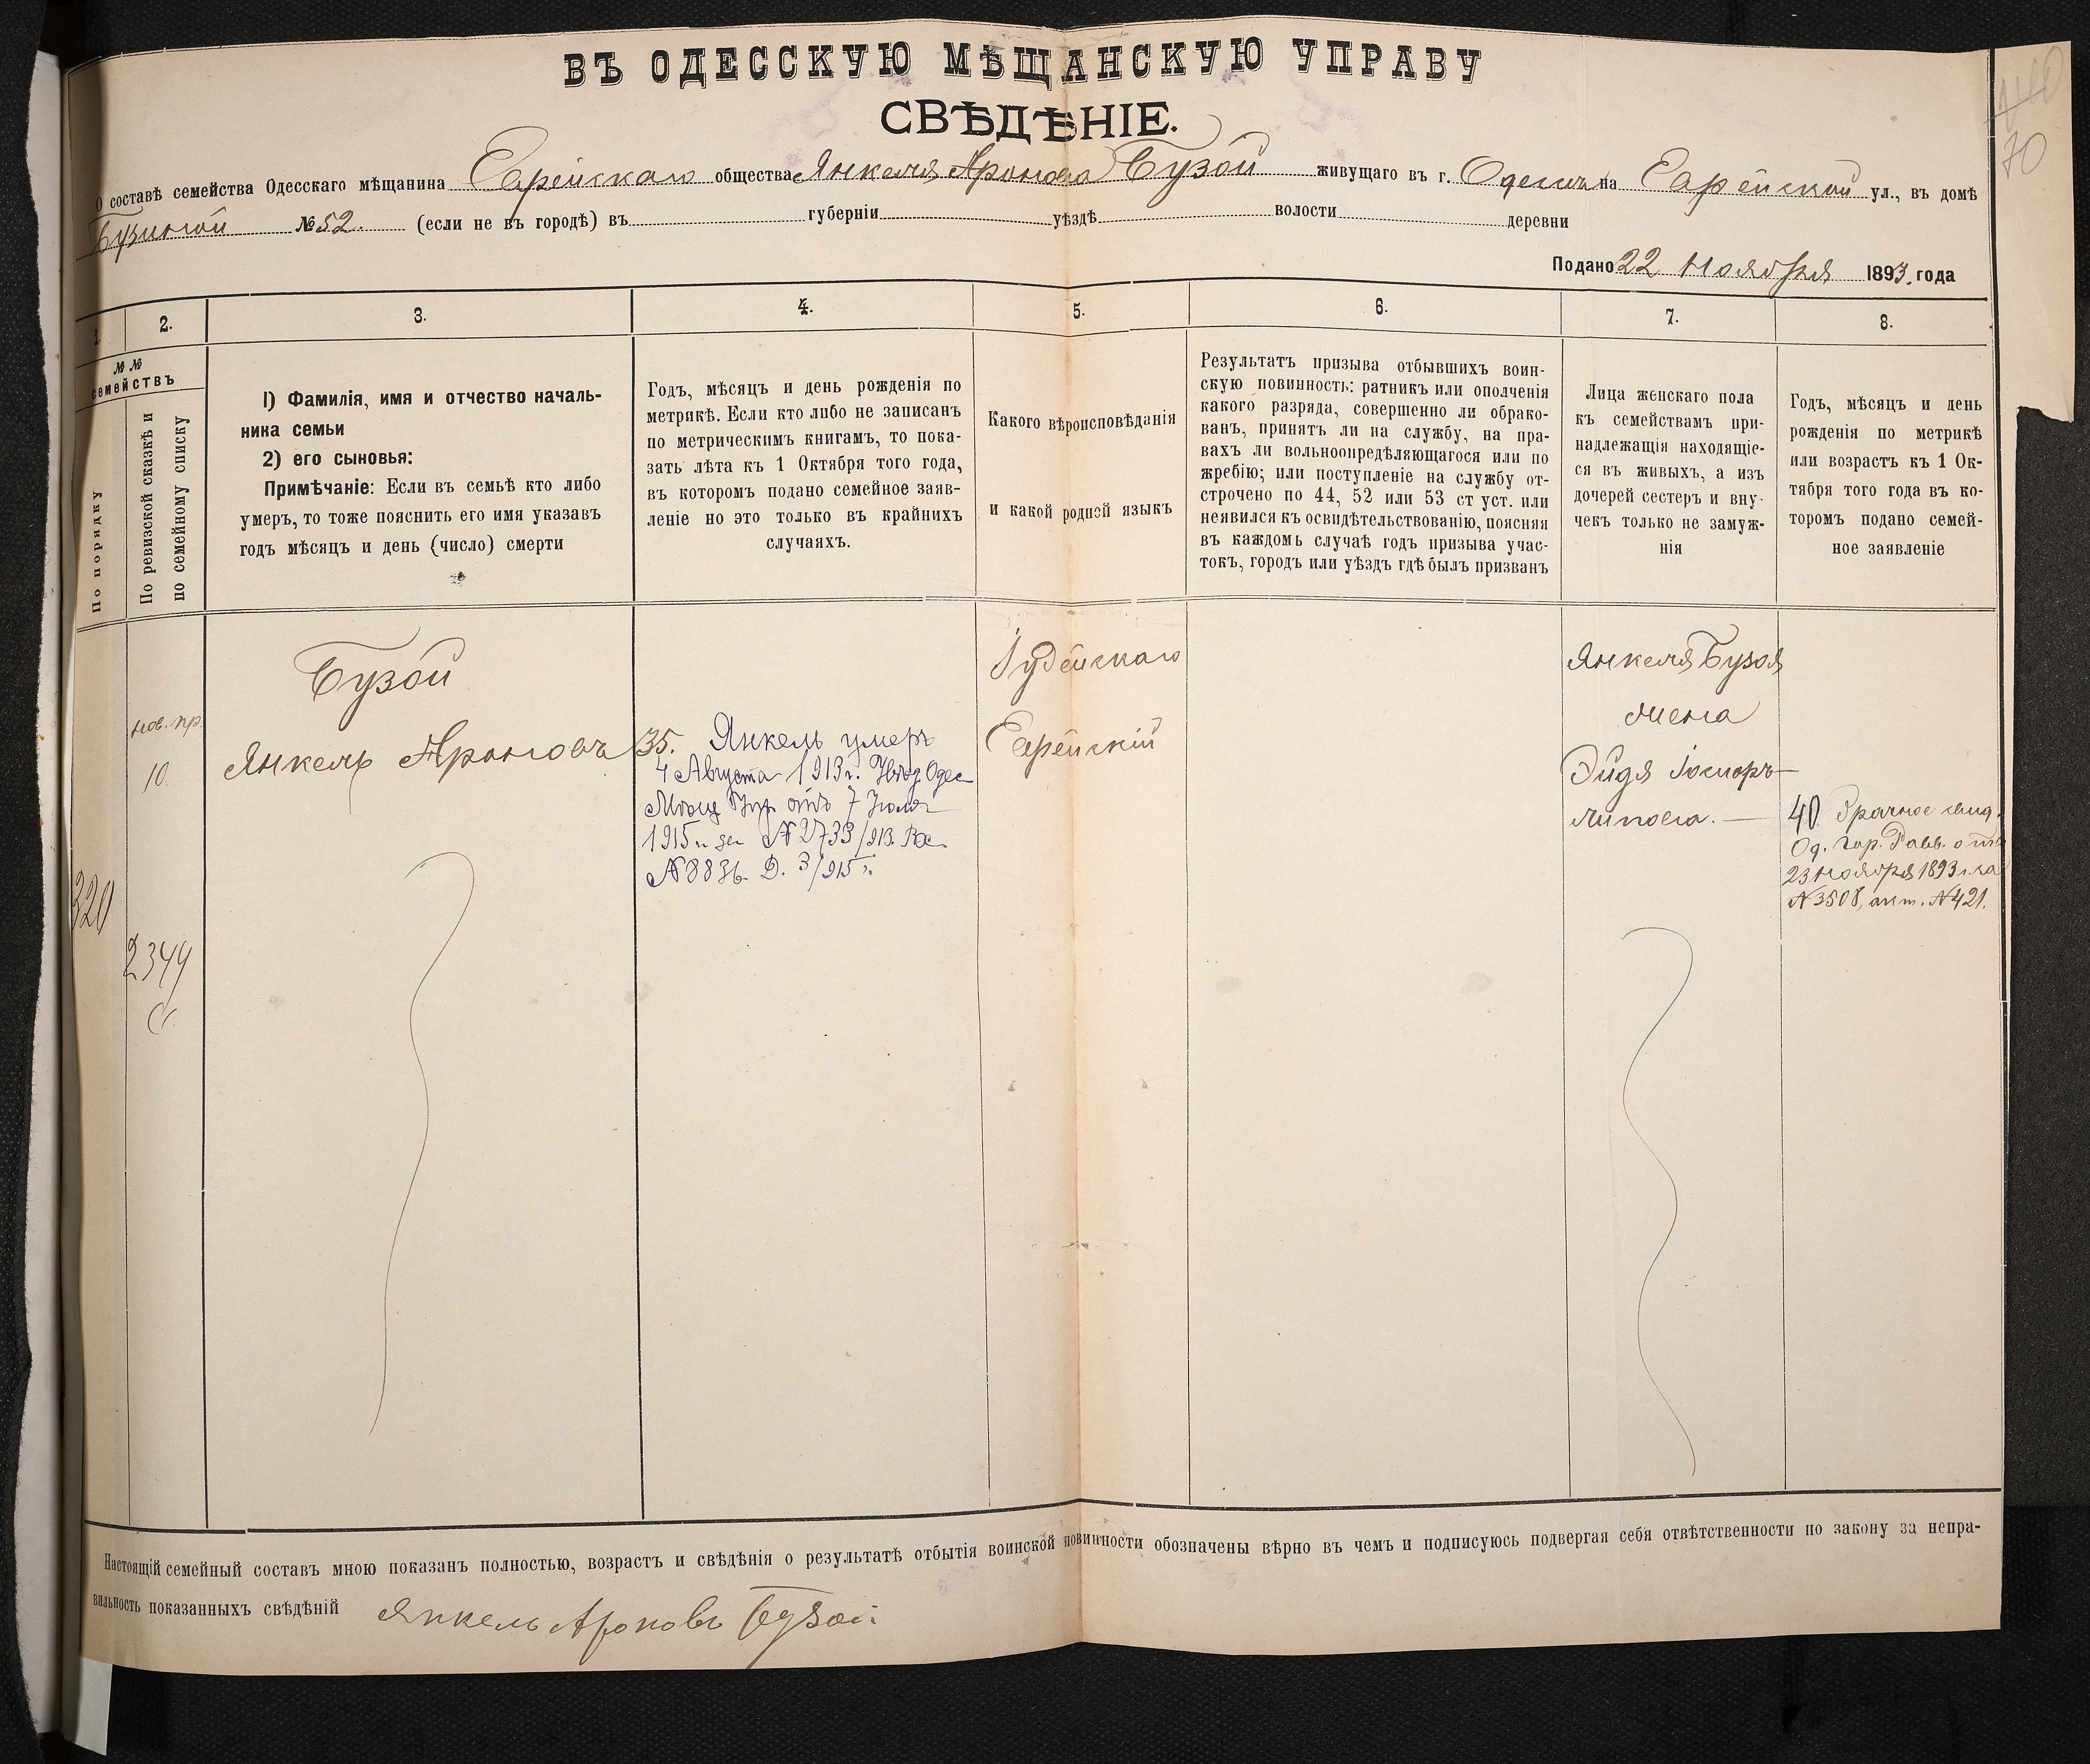 ВЪ ОДЕССКУЮ МѢЩАНСКУЮ УПРАВУ
СВѢДѢНІЕ.
70
О составѣ семейства Одесскаго мѣщанина Еврейскаго общества Янкеля Аронова Бузой живущаго въ г. Одессѣ на Еврейской ул., въ домѣ
Бузиной №52. (если не въ городѣ) въ губерніи уѣздѣ волости деревни
Подано 22 Ноября 1893. года
1. 2. 3. 4. 5. 6. 7. 8.
№ №
семействъ
По порядку
По ревизской сказкѣ и
по семейному списку
1) Фамилія, имя и отчество началь-
ника семьи
2) его сыновья:
Примѣчаніе: Если въ семьѣ кто либо
умеръ, то тоже пояснить его имя указавъ
годъ мѣсяцъ и день (число) смерти
Годъ, мѣсяцъ и день рожденія по
метрикѣ. Если кто либо не записанъ
по метрическимъ книгамъ, то пока-
зать лѣта къ 1 Октября того года,
въ которомъ подано семейное заяв-
леніе но это только въ крайнихъ
случаяхъ.
Какого вѣроисповѣданія
и какой родной языкъ
Результатъ призыва отбывшихъ воин-
скую повинность: ратникъ или ополченія
какого разряда, совершенно ли обрако-
ванъ, принятъ ли на службу, на пра-
вахъ ли вольноопредѣляющагося или по
жребію; или поступленіе на службу от-
строчено по 44, 52 или 53 ст уст. или
неявился къ освидѣтельствованію, поясняя
въ каждомъ случаѣ годъ призыва учас-
токъ, городъ или уѣздъ гдѣ былъ призванъ
Лица женскаго пола
къ семействамъ при-
надлежащія находящіе-
ся въ живыхъ, а изъ
дочерей сестеръ и вну-
чекъ только не замуж-
нія
Годъ, мѣсяцъ и день
рожденія по метрикѣ
или возрастъ къ 1 Ок-
тября того года въ ко-
торомъ подано семей-
ное заявленіе
320
нов. пр.
10.
2349
Бузой
Янкель Ароновъ
35. Янкель умеръ
4 Августа 1913 г. Одес
Мѣщ Упр отъ 7 Іюля
1915 г за №2733/913. Вх.
№8836. Д. 3/915 г.
Іудейскаго
Еврейскій
Янкеля Бузоя
жена
Эйдя Іосиоръ-
Липова.
40 Брачное свид.
Од. Гор. Равв. отъ
23 Ноября 1893 г. за
№3508, акт. №421.
Настоящій семейный составъ мною показанъ полностью, возрастъ и свѣдѣнія о результатѣ отбытія воинской повинности обозначены вѣрно въ чемъ и подписуюсь подвергая себя отвѣтственности по закону за непра-
вильность показанныхъ свѣдѣній Янкель Ароновъ Бузой